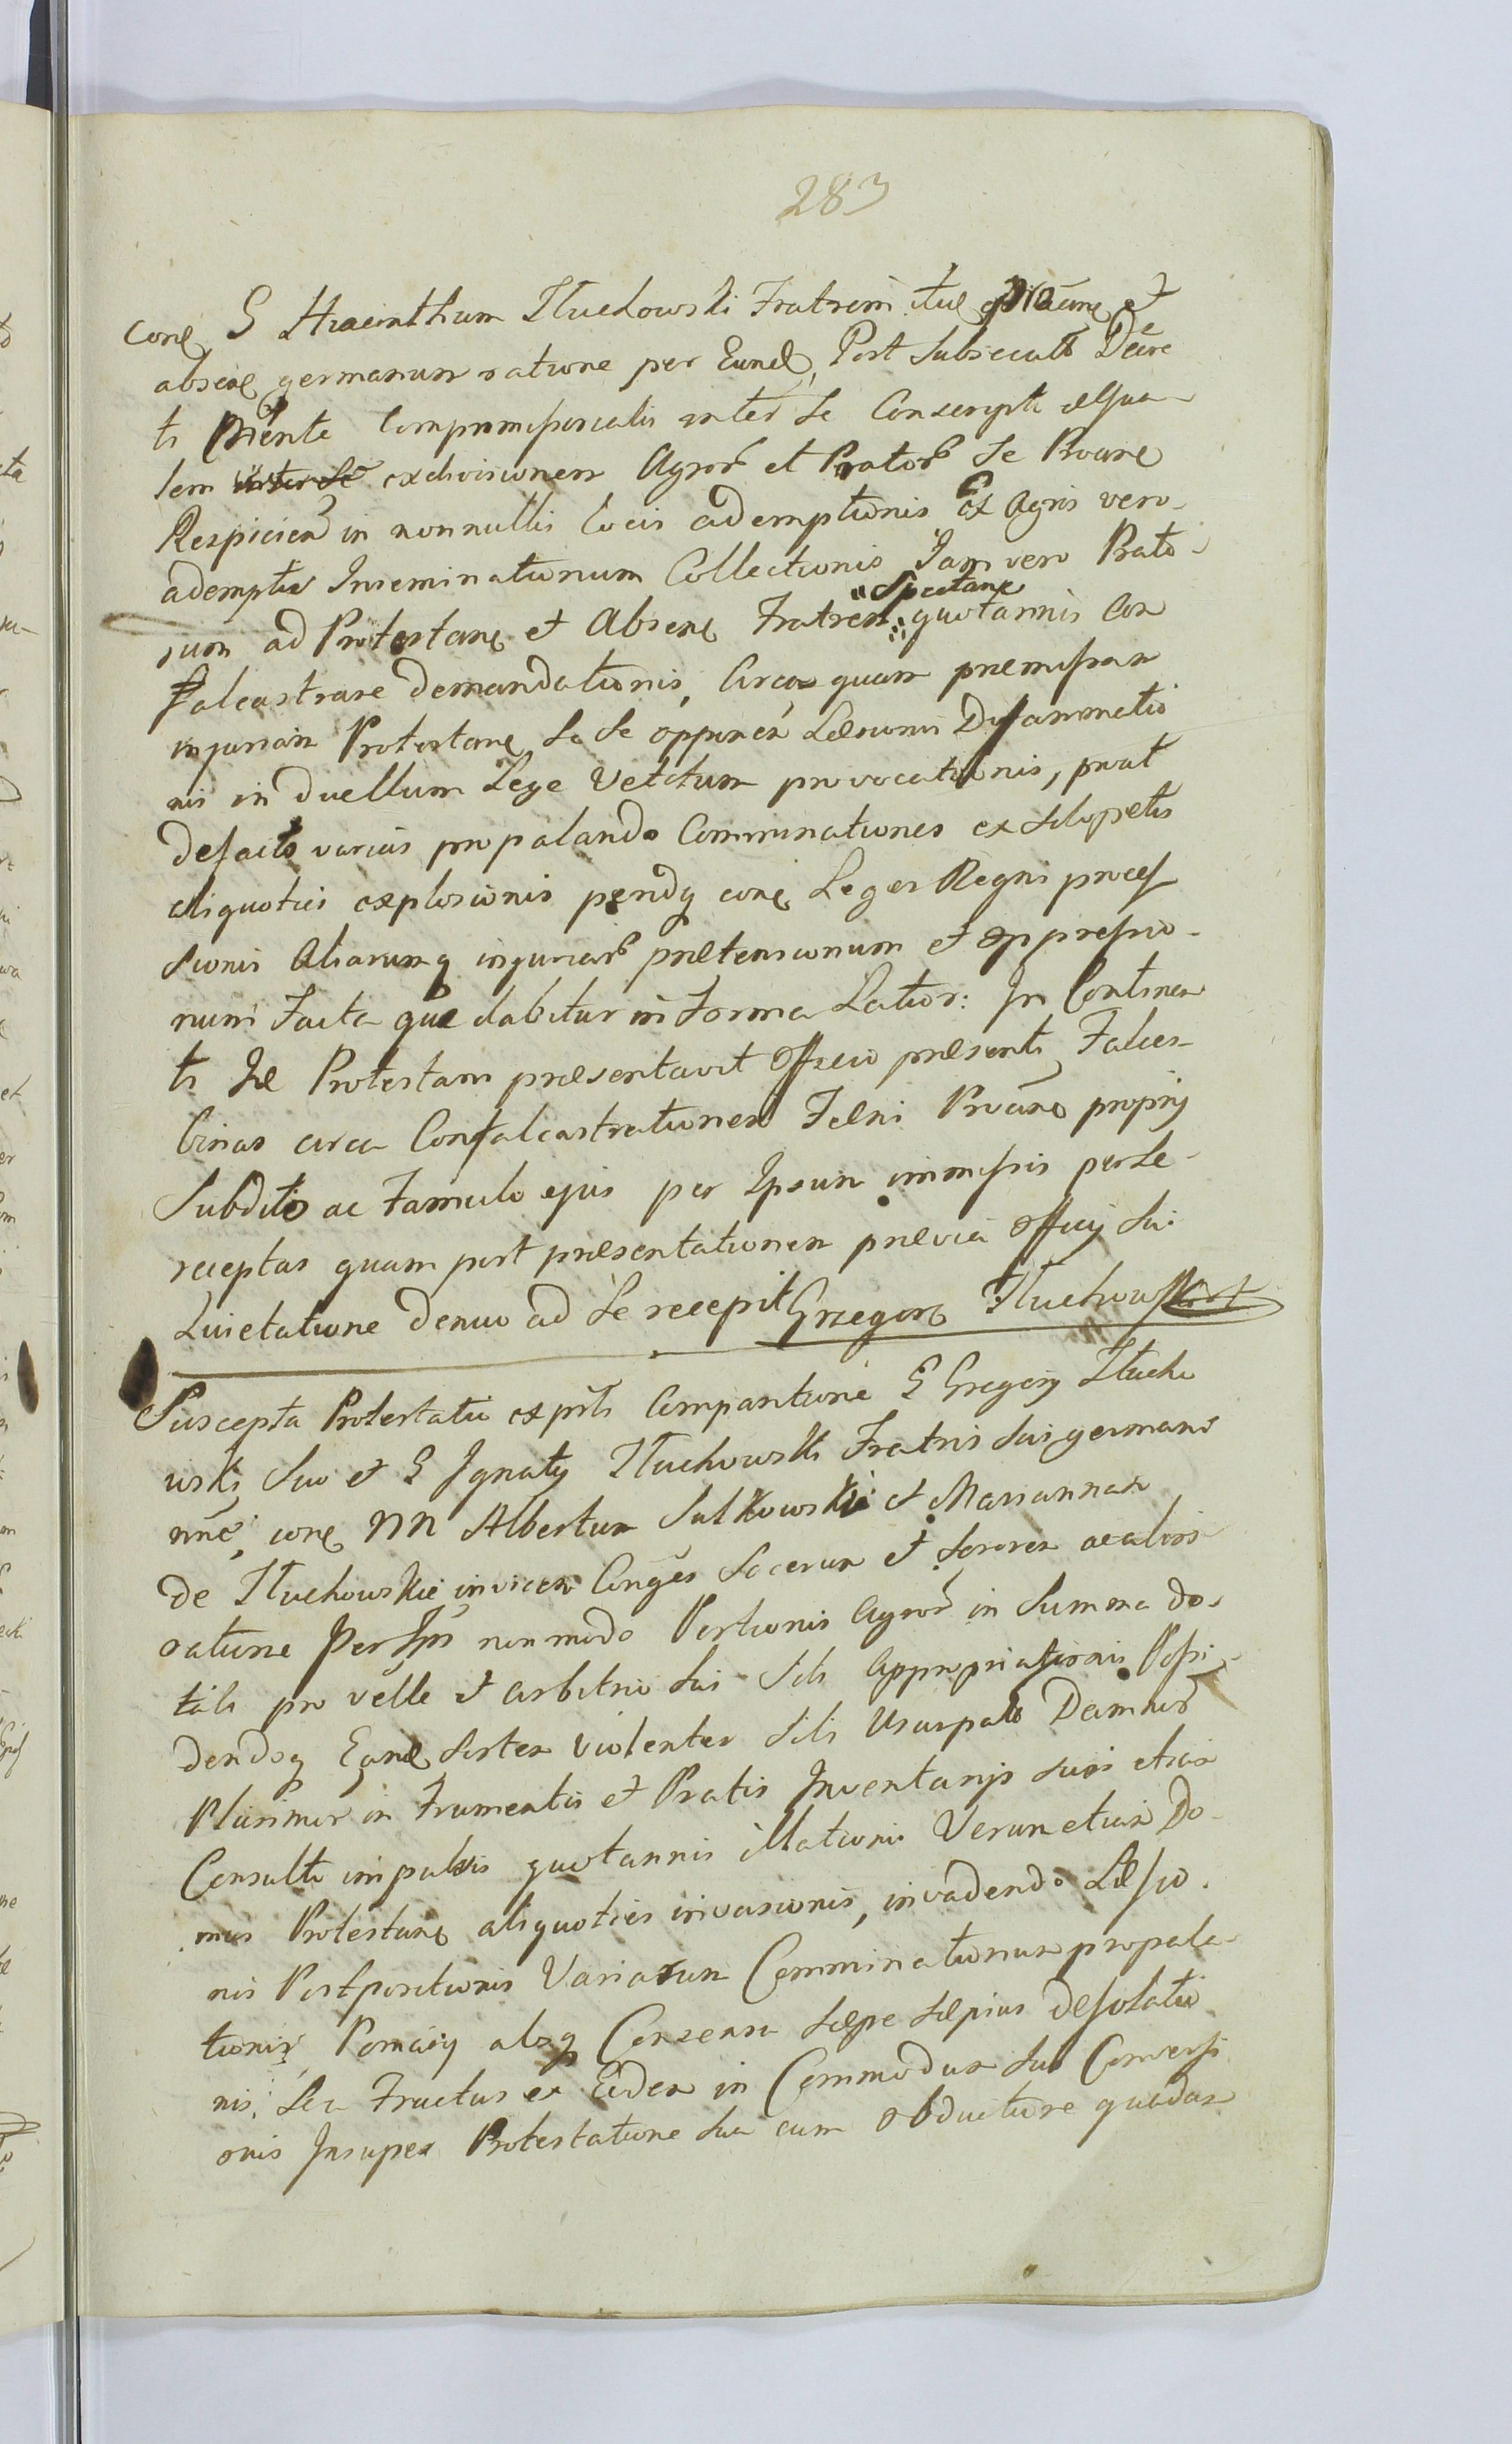 283
Conq G Hiacinthum Tłuchowski Fratrem suę et
absenę germanum ratione per Eundę, Post Subsecuti Decre
ti Compromissorialis inter Se Conscripti æqua
lem inter Se exdivisionem Agror̃ et Prator̃ Se
Respicien̄ in nonnullis locis ademptionis ex Agris vero
ademptis Inseminationum Collectionis Jam vero Prato
rum ad Protestanę et Absenę Fratrem Spectanę quotannis Con
falcastrare demandationis, Circa quam præmissam
injuriam Protestanę Se Se opponen̄ Læsionis Diffammatio
nis in duellum Lege Vetitum provocationis, prout
defacto varias propalando Comminationes ex Sclopetis
aliquoties explosionis conę Leges Regni proces
sionis Aliarumq injuriar̃ prætensionum et oppressio
num Facta quæ dabitur in Forma Latior: In Continen
ti Protestans præsentavit Officio præsenti Falces
binas circa Confalcastrationem Fæni propriis
Subdito ac Famulo ejus per Ipsum immissis per Se
receptas quam post præsentationem prævia Officij Sui
Quietatione denuo ad Se recepit Grzegorz Tłuchowski
Suscepta Protestatio ex Comparitione G Gregorij Tłucho
wski Suo et G Ignatij Tłuchowski Fratris Sui germani
nn̄e, conę MM Albertum Sulkowski et Mariannam
de Tłuchowskie invicem Conges Socerum et Sororem
ratione per Ipsos non modo Portionis Agror̃ in Summa do
tali pro velle et arbitrio Sui Sibi Appropriationis Possi
dendoq Eanę Sortem violenter Sibi Usurpato Damnor̃
Plurimor̃ in Frumentis et Pratis Inventarijs Suis etiam
Consulto impulsis quotannis illationis Verum etiam Do
mus Protestanę aliquoties invasionis, invadendo Læsio
nis Postpositionis Variarum Comminationum propala
tionis Pomarij absq Consensu Sæpe Sæpius desolatio
nis, Seu Fructus ex Eodem in Commodum Suum Conversi
onis Insuper Protestatione Sua cum obductione quadam